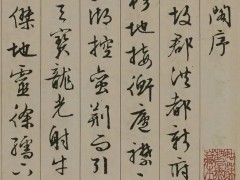 閣序
故郡洪都新府
軫地接衡廬襟
湖控蠻荊而引
天寶龍光射牛
傑地靈徐孺下